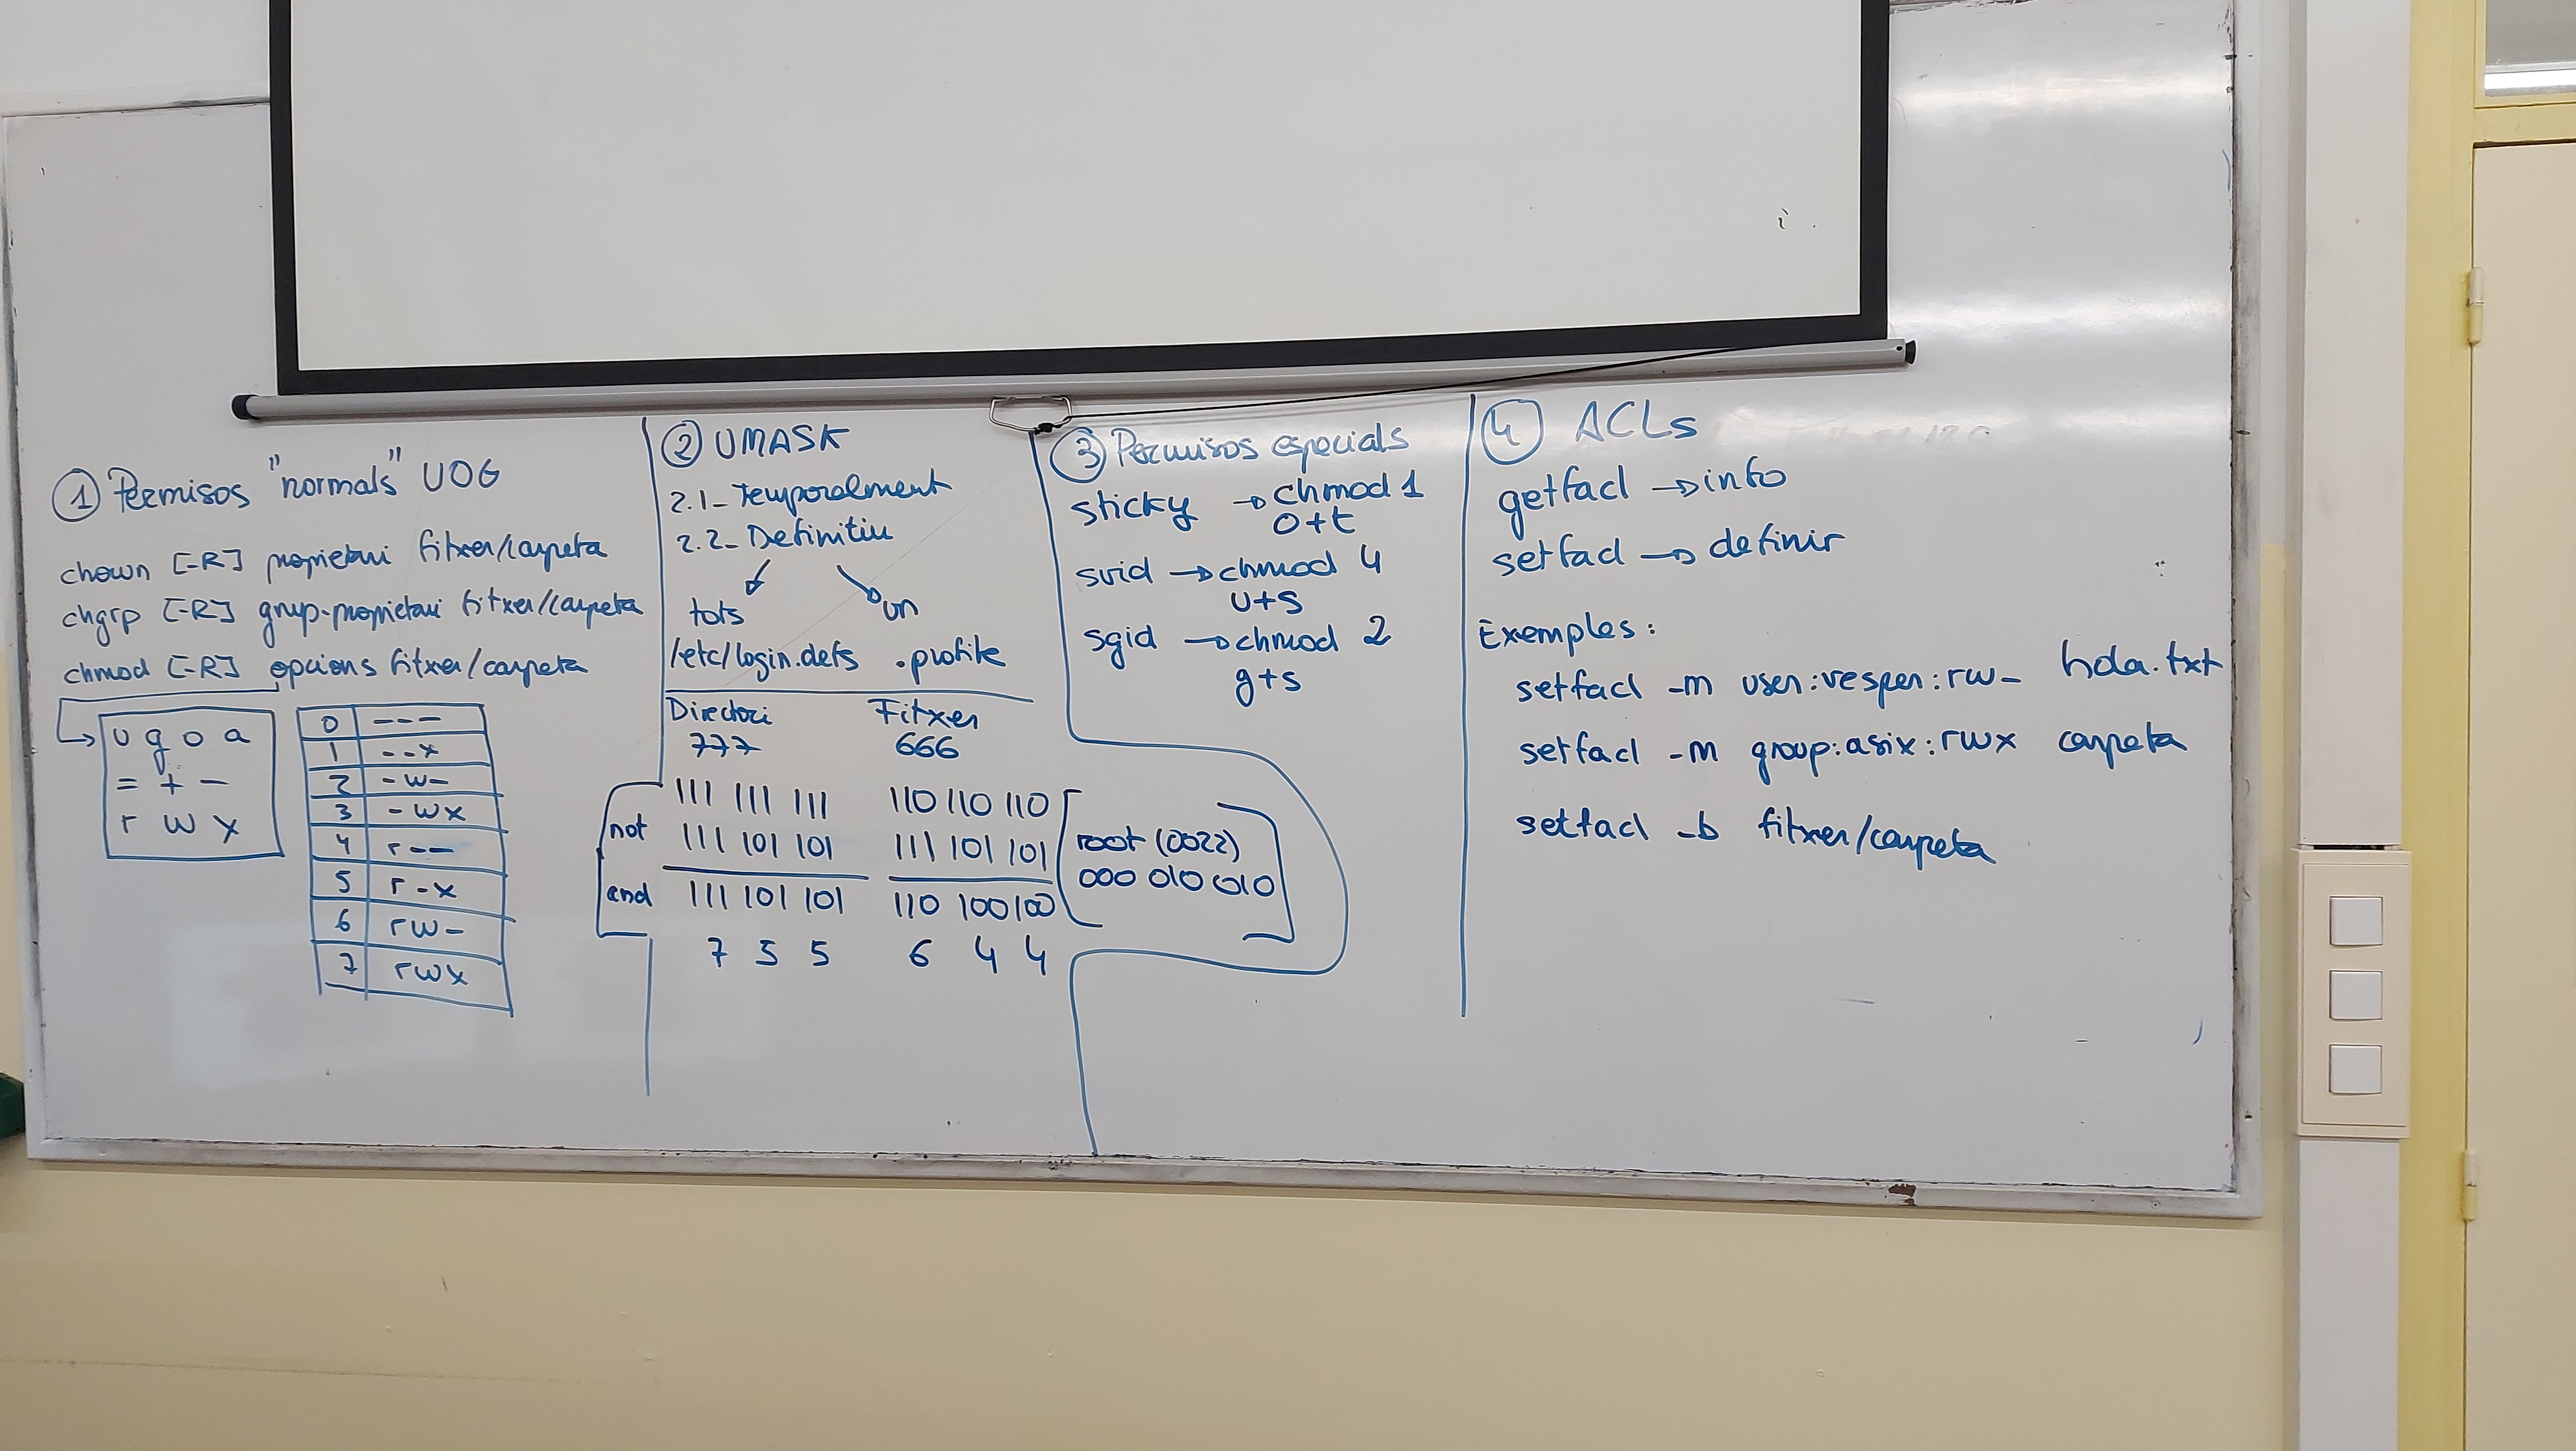 ① Permisos "normals" UOG
chown [-R] propietari fitxer/carpeta
chgrp [-R] grup-propietari fitxer/carpeta
chmod [-R] opcions fitxer/carpeta
u g o a
= + -
r w x
0 ---
1 --x
2 -w-
3 -wx
4 r--
5 r-x
6 rw-
7 rwx
② UMASK
2.1- Temporalment
2.2- Definitiu
tots un
/etc/login.defs .profile
Directori Fitxer
777 666
111 111 111 110 110 110
not 111 101 101 111 101 101
and 111 101 101 110 100 100
7 5 5 6 4 4
root (0022)
000 010 010
③ Permisos especials
sticky → chmod 1
o+t
suid → chmod 4
u+s
sgid → chmod 2
g+s
④ ACLs
getfacl → info
setfacl → definir
Exemples:
setfacl -m user:vesper:rw- hola.txt
setfacl -m group:asix:rwx carpeta
setfacl -b fitxer/carpeta